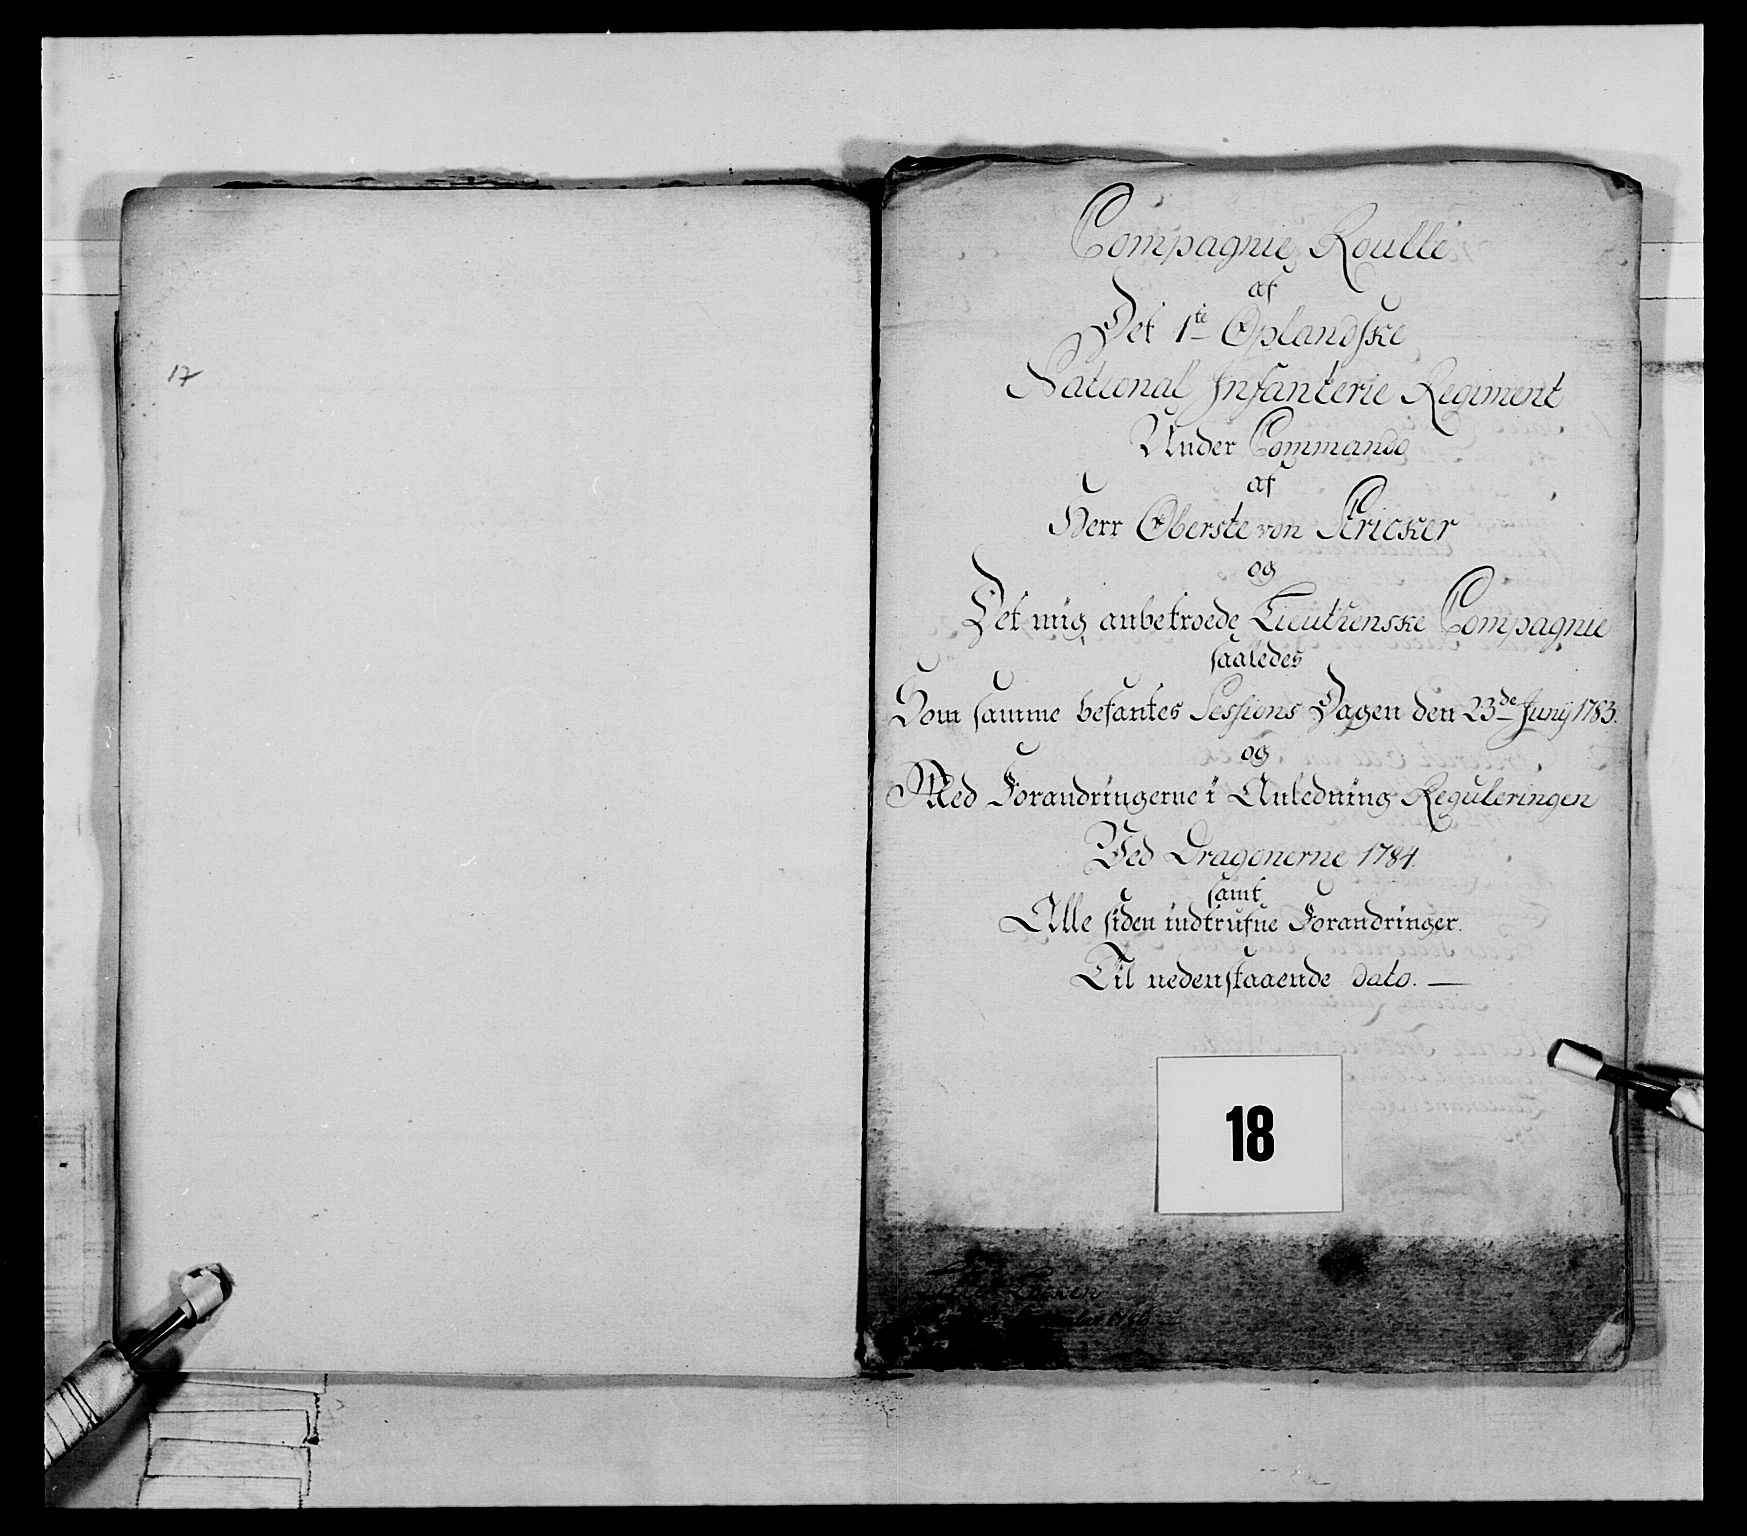 17
Compagnie Roulle
af
Det 1te Oplandske
National Infanterie Regiment
Under Commando
af
Herr Oberste von Stricker
og
Det mig anbetroede Lieutienske Compagnie
saaledes
Som samme befantes Sessions Dagen den 23de Junij 1783.
og
Med Forandringerne i Anledning Reguleringen
Ved Dragonerne 1784.
samt
Alle siden indtrufne Forandringer.
Til nedenstaaende dato. —
18